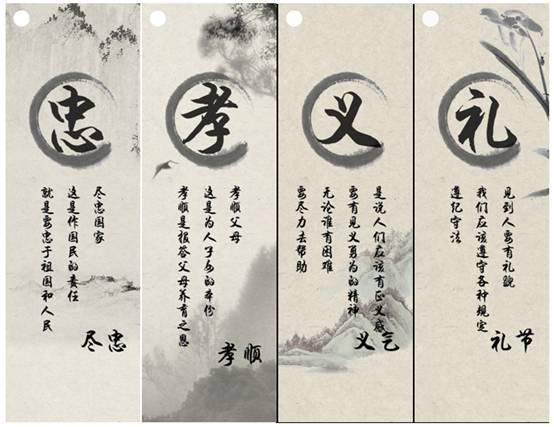 忠
尽忠国家
这是作国民的责任
就是要忠于祖国和人民
尽忠
孝
孝顺父母
这是为人子女的本份
孝顺是报答父母养育之恩
孝顺
义
是说人们应该有正义感
要有见义勇为的精神
无论谁有困难
要尽力去帮助
义气
礼
见到人要有礼貌
我们应该遵守各种规定
遵纪守法
礼节